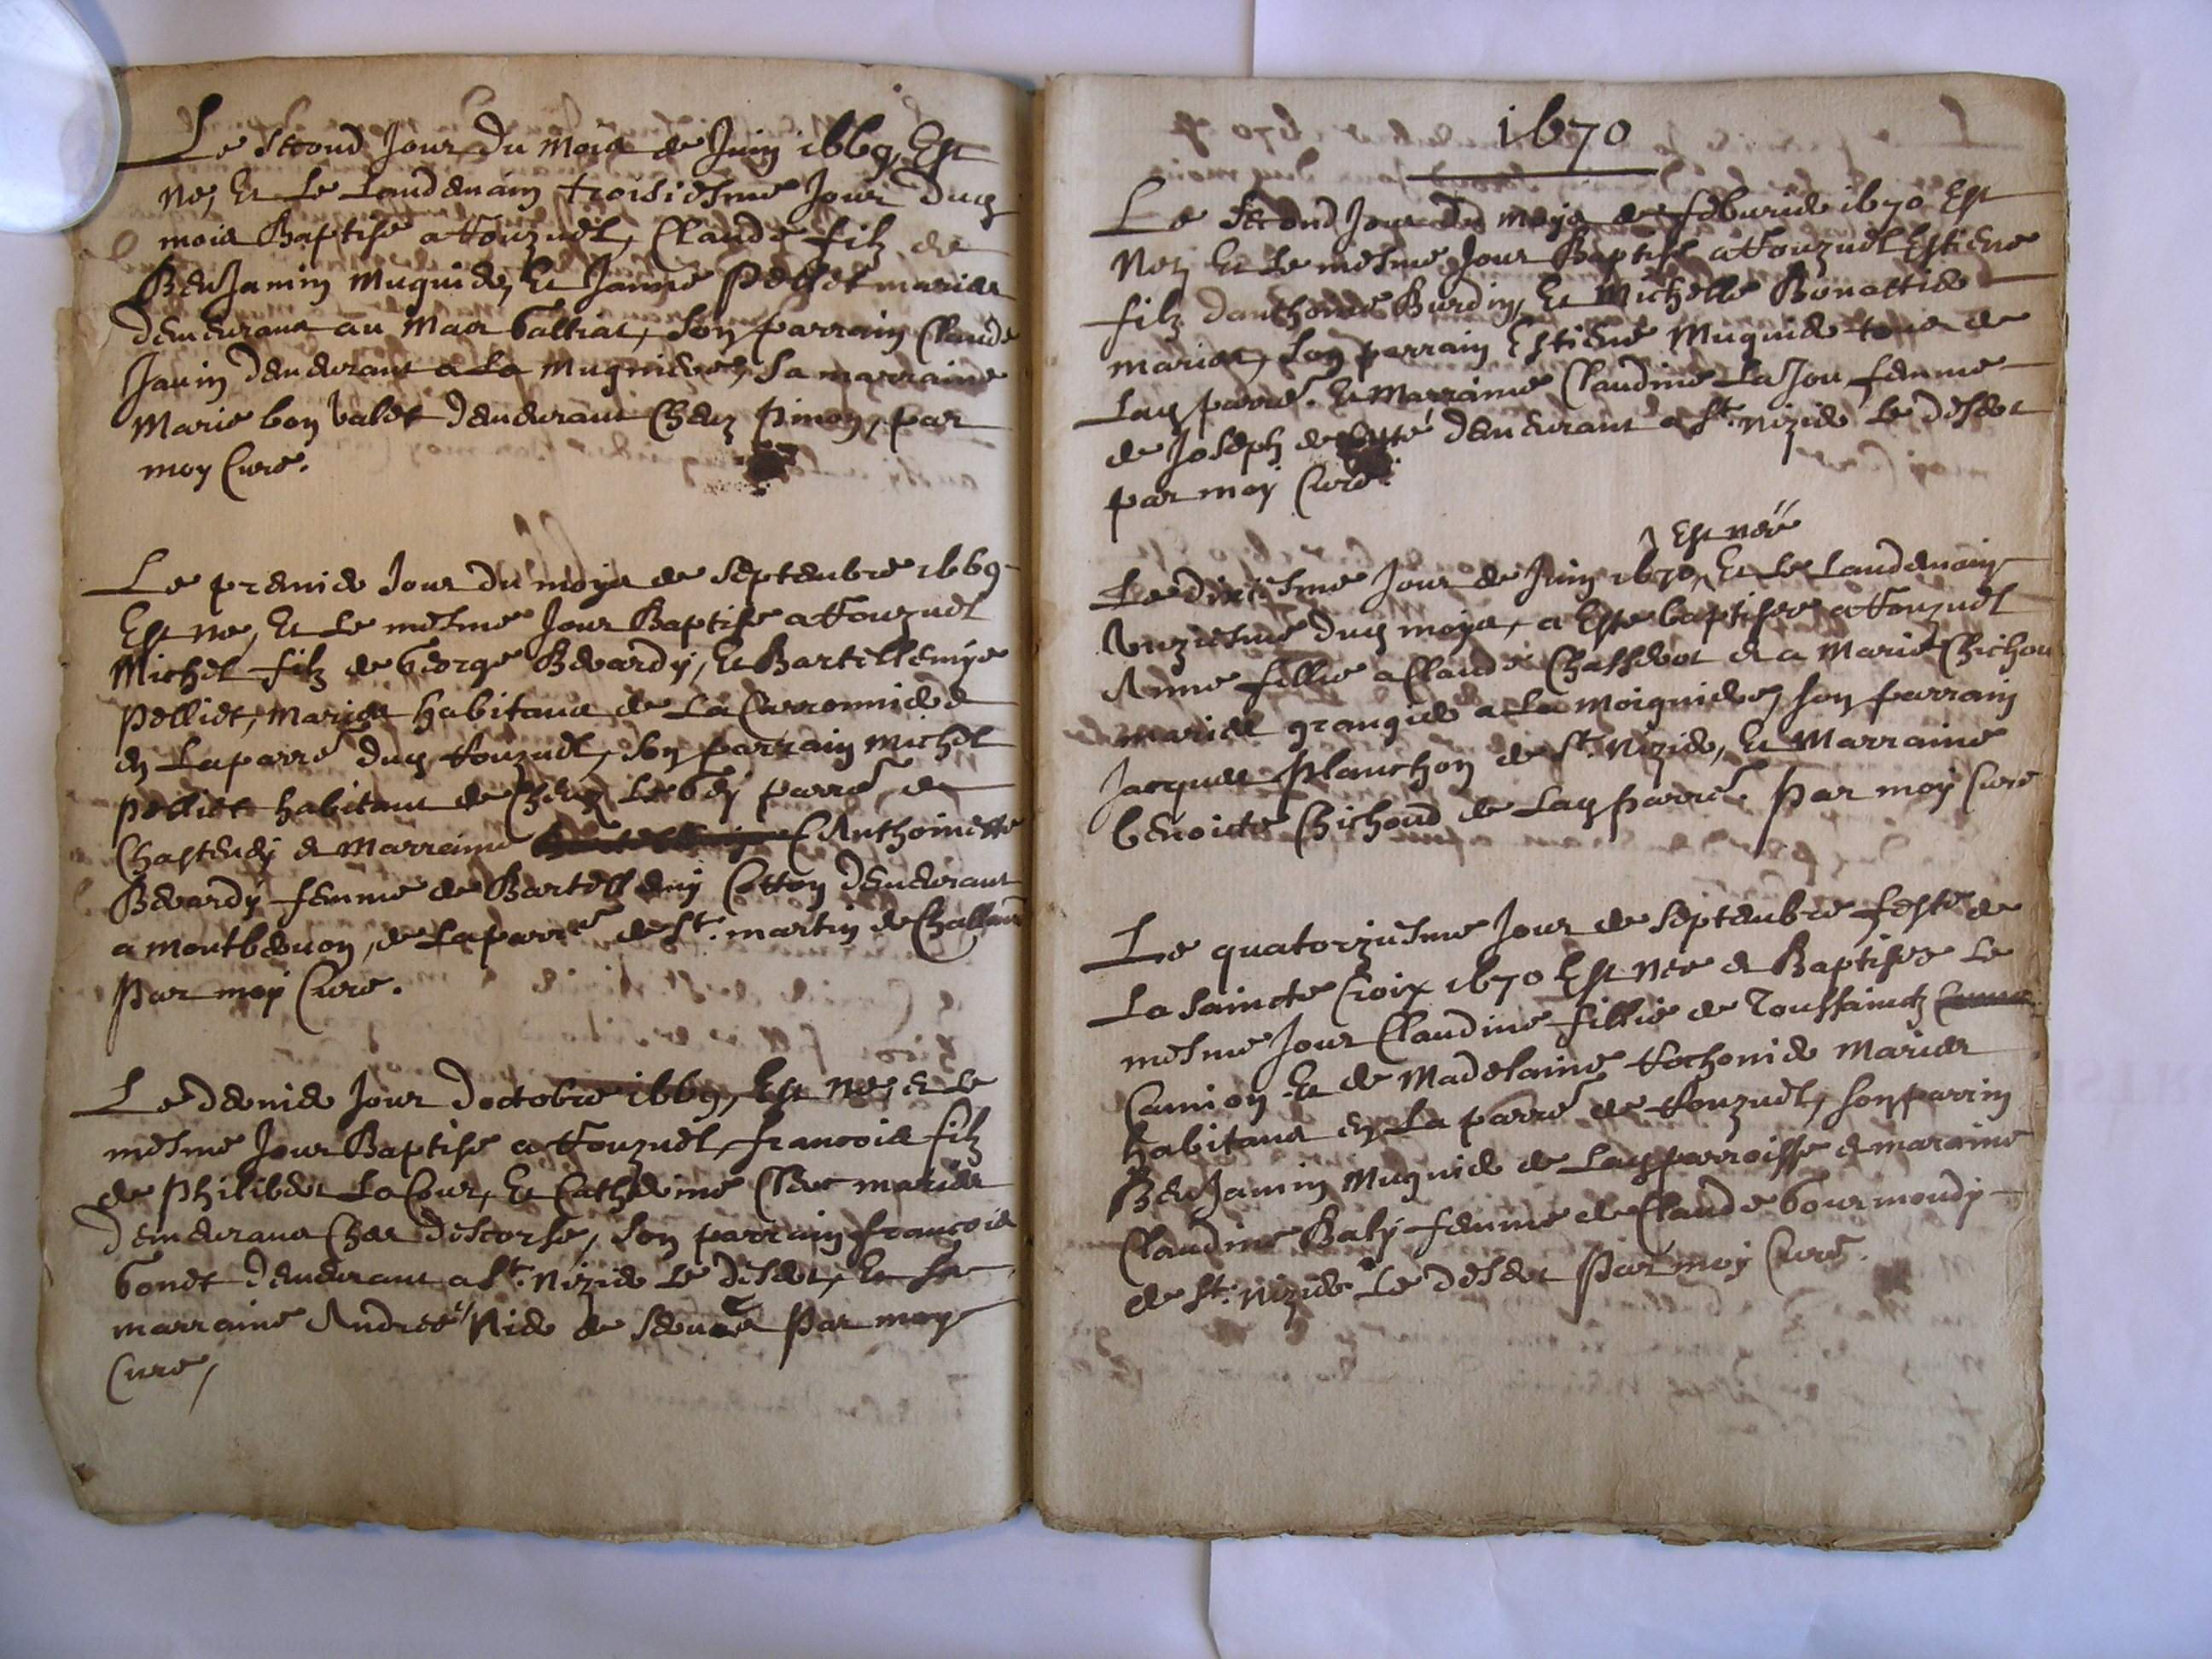 Le second Jour du mois de Juin 1669, Est
ne, Et Le Landemain troisiesme Jour dud
mois Baptise a Conzuel, Claude filz de
BenJamin Muguier, Et Janne Pellet maries
demeurans au Mas Galliat, son parrain Claude
Janin demeurant a La Muguiere, sa marraine
Marie bon valet demeurant Cheuz pinoy, par
moy Cure.
Le premier Jour du moys de Septembre 1669
Est ne, Et Le mesme Jour Baptise a Conzuel
Michel filz de George Berardy, Et Bartellemye
Pelliet, maries habitans de La Carronniere
en La parre dud Conzuel, son parrain Michel
Pelliet habitant de Cheuz Le Gey parre de
Chastenay et Marraine Anthoinette
Berardy femme de Bartellemy Cotton demeurant
a Montbevon, de La parre de St. martin de Challam
Par moy Cure.
Le dernier Jour doctobre 1669, Est ne, et Le
mesme Jour Baptise a Conzuel, francois filz
de Philibert La Cour, Et Catherine Clerc maries
demeurans Ches descorse, son parrain francois
Gonet demeurant a St. Nizier Le desert, Et sa
marraine Andree Nier de par moy
Cure,
1670
Le second Jour du moys de febvrier 1670 Est
Ne, Et Le mesme Jour Baptise a Conzuel Estiene
filz danthoine Burdin, Et Michelle Bonattier
maries, son parrain Estiene Muguier tous de
Lad parre. Et Marraine Claudine LaJou femme
de Joseph de demeurant a St. Nizier Le desert
par moy Cure.
Est née
Le dixiesme Jour de Juin 1670, Et Le Landemain
unziesme dud moys, a Este baptisee a Conzuel
Anne fillie a Claude Chasserot et a Marie Chichou
maries grangier a La Moiguiere, son parrain
Jacques Planchon de St. Nizier, Et Marraine
benoicte Chichoud de Lad parre. Par moy Cure
Le quatorziesme Jour de Septembre feste de
La saincte Croix 1670 Est Nee et Baptisee Le
mesme Jour Claudine fillie de Toussainctz
Camion Et de Madelaine Cochonier Maries
habitans en La parre de Conzuel, son parrin
BenJamin Muguier de Lad parroisse et maraine
Claudine Baly femme de Claude Gourmondy
de St. Nizier Le desert Par moy Cure.